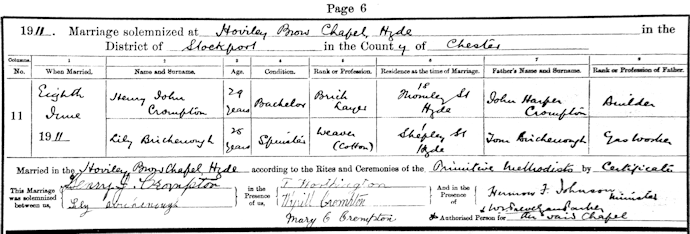 Page 6
1911. Marriage solemnized at Hoviley Brow Chapel, Hyde in the
District of Stockport in the County of Chester
Columns. 1 2 3 4 5 6 7 8
When Married. Name and Surname. Age. Condition. Rank or Profession. Residence at the time of Marriage. Father's Name and Surname. Rank or Profession of Father.
11
Eighth Henry John 29 Bachelor Brick 18 John Harper Builder
June Crompton years Layer St Crompton
Hyde
1911 Lily Birchenough 25 Spinster Weaver 1 Shepley St Tom Birchenough Gas Worker
years (Cotton) Hyde
Married in the Hoviley Brow Chapel Hyde according to the Rites and Ceremonies of the Primitive Methodists by Certificate
This Marriage was solemnized between us,
Henry J. Crompton
Lily Birchenough
in the Presence of us,
T Worthington
Crompton
Mary C Crompton
And in the Presence of
F. Johnson Minister
Authorised Person for the said Chapel